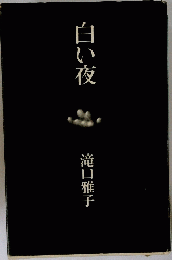 白い夜
滝口雅子